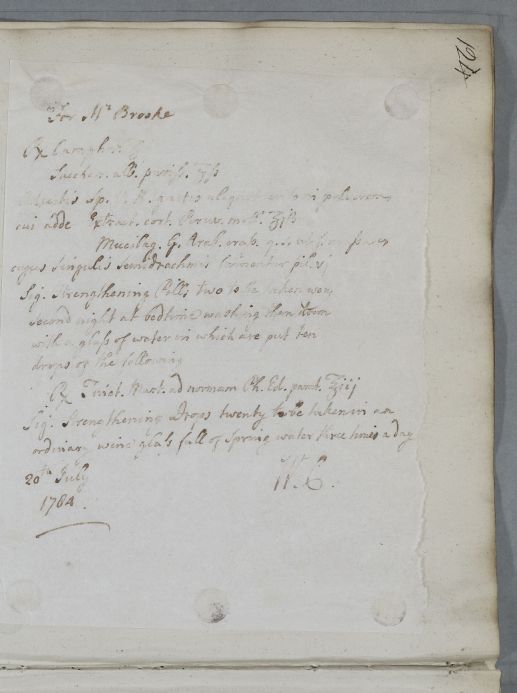 124
For Mr Brooke
℞ Camphor. ʒj
Sacchar. alb. puriss. ʒß
Sp. V. R. guttis aliquot in pulverem
cui adde Extract. Cort. Peruv. moll. ʒiß
Mucilag. G. Arab. q. s. ut f. massa
cujus singulis semidrachmis formentur pil. vj
Sig. Strengthening Pills two to be taken every
second night at bedtime washing them down
with a glass of water in which are put ten
drops of the following
℞ Tinct. Mart. ad normam Ph. Ed. parat. ʒiij
Sig. Strengthening Drops twenty to be taken in an
ordinary wine glass full of Spring water three times a day
20th July
1784
W. C.